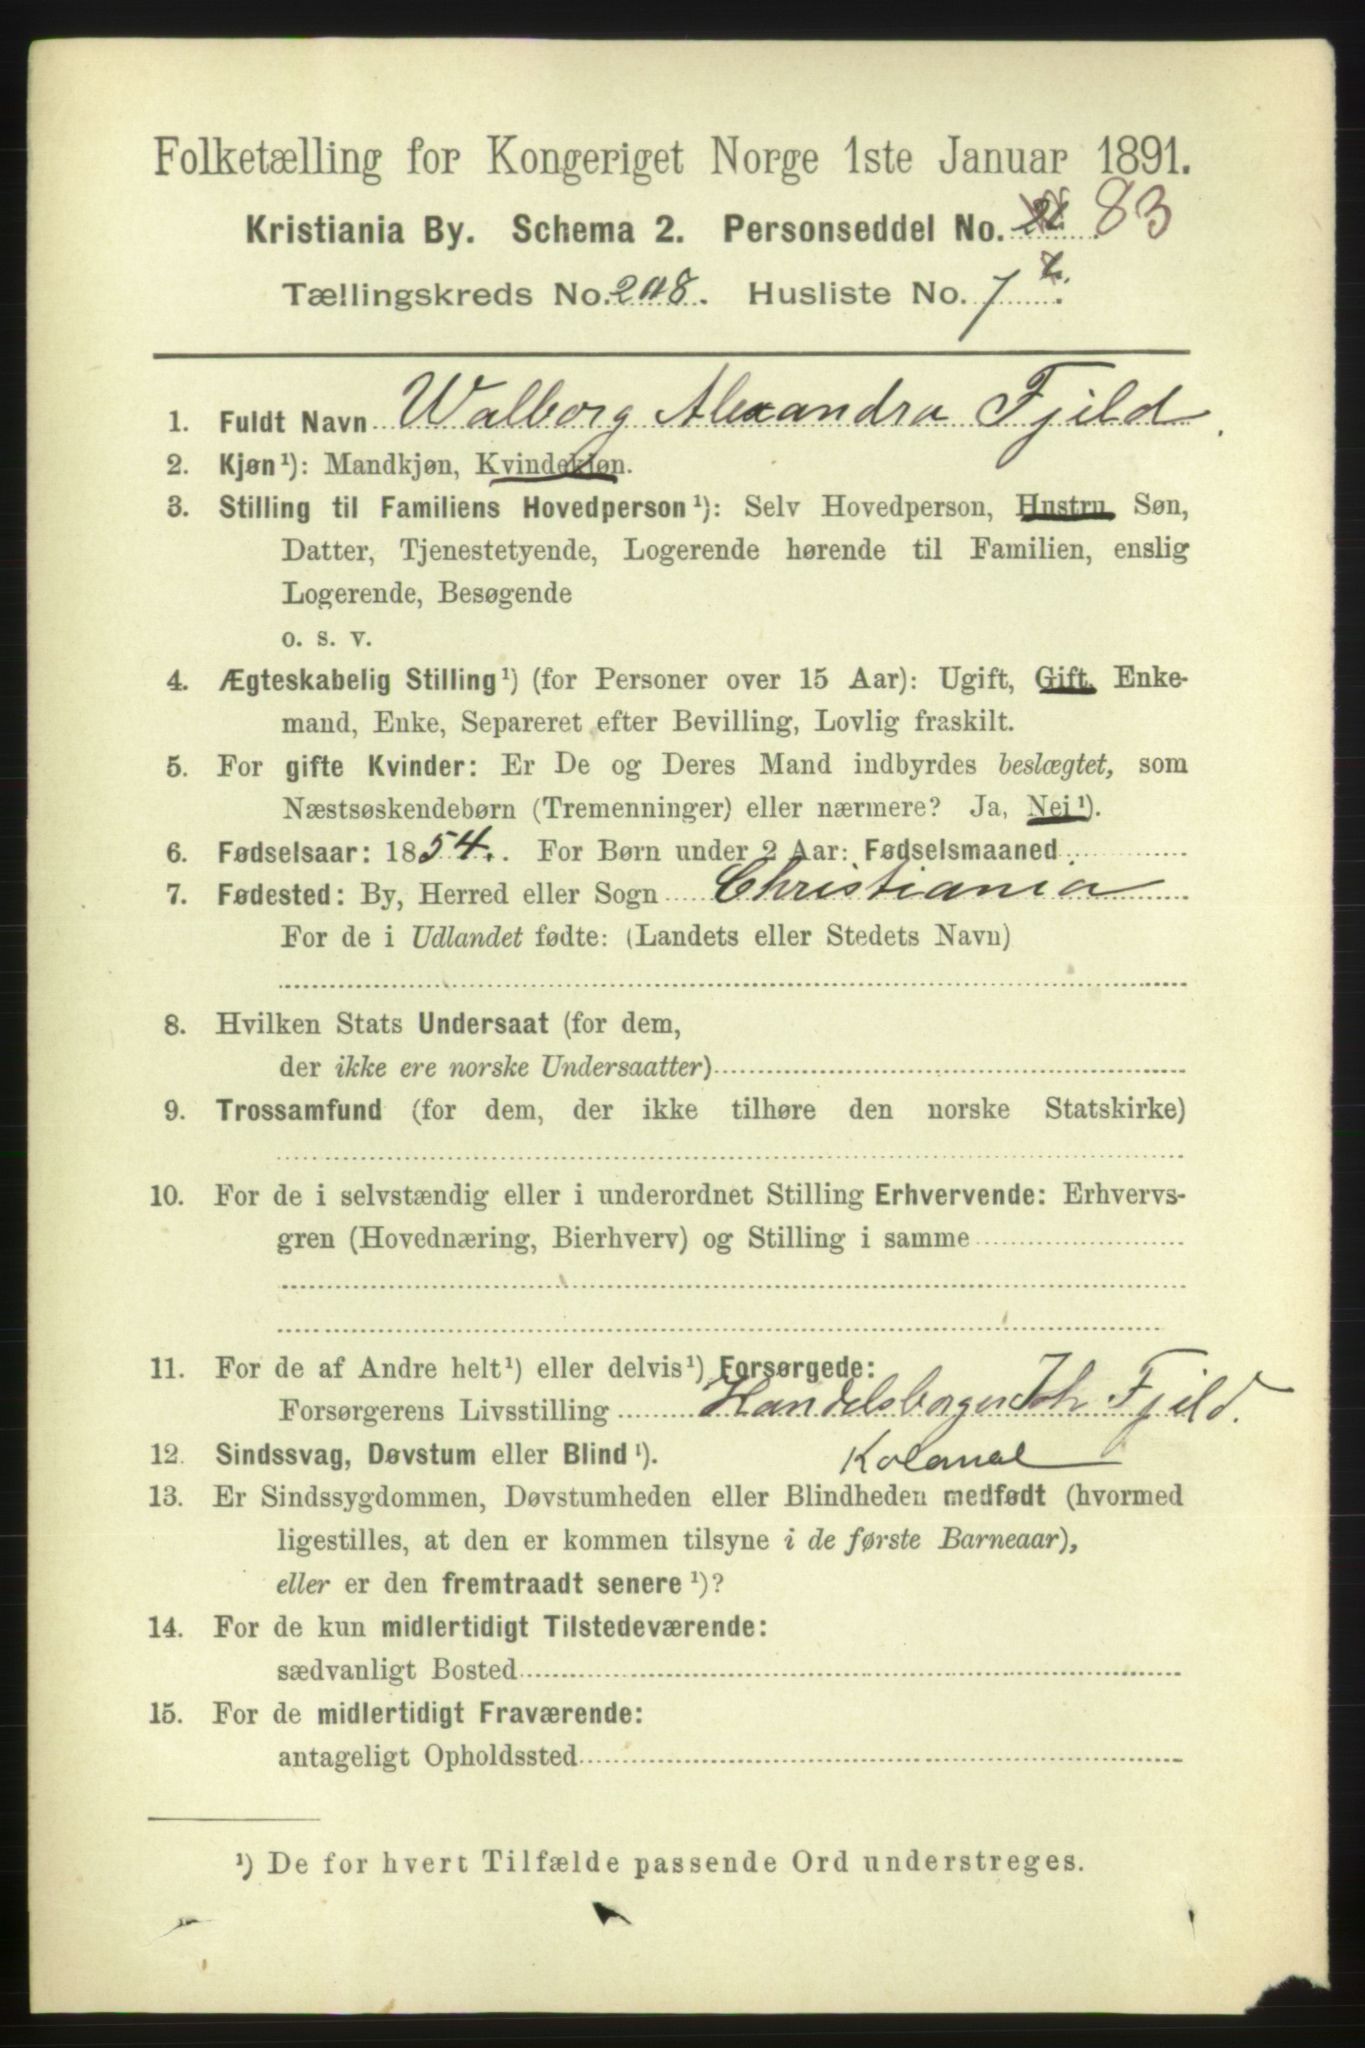 Folketælling for Kongeriget Norge 1ste Januar 1891.
Kristiania By. Schema 2. Personseddel No. 83
Tællingskreds No. 208. Husliste No. 7
1. Fuldt Navn Walborg Alexandra Fjeld.
2. Kjøn¹): Mandkjøn, Kvindekjøn.
3. Stilling til Familiens Hovedperson¹): Selv Hovedperson, Hustru, Søn,
Datter, Tjenestetyende, Logerende hørende til Familien, enslig
Logerende, Besøgende
o. s. v.
4. Ægteskabelig Stilling¹) (for Personer over 15 Aar): Ugift, Gift, Enke-
mand, Enke, Separeret efter Bevilling, Lovlig fraskilt.
5. For gifte Kvinder: Er De og Deres Mand indbyrdes beslægtet, som
Næstsøskendebørn (Tremenninger) eller nærmere? Ja, Nei¹).
6. Fødselsaar: 1854. For Børn under 2 Aar: Fødselsmaaned
7. Fødested: By, Herred eller Sogn Christiania
For de i Udlandet fødte: (Landets eller Stedets Navn)
8. Hvilken Stats Undersaat (for dem,
der ikke ere norske Undersaatter)
9. Trossamfund (for dem, der ikke tilhøre den norske Statskirke)
10. For de i selvstændig eller i underordnet Stilling Erhvervende: Erhvervs-
gren (Hovednæring, Bierhverv) og Stilling i samme
11. For de af Andre helt¹) eller delvis¹) Forsørgede:
Forsørgerens Livsstilling Handelsborger Joh Fjeld.
Kolonial
12. Sindssvag, Døvstum eller Blind¹).
13. Er Sindssygdommen, Døvstumheden eller Blindheden medfødt (hvormed
ligestilles, at den er kommen tilsyne i de første Barneaar),
eller er den fremtraadt senere¹)?
14. For de kun midlertidigt Tilstedeværende:
sædvanligt Bosted
15. For de midlertidigt Fraværende:
antageligt Opholdssted
¹) De for hvert Tilfælde passende Ord understreges.